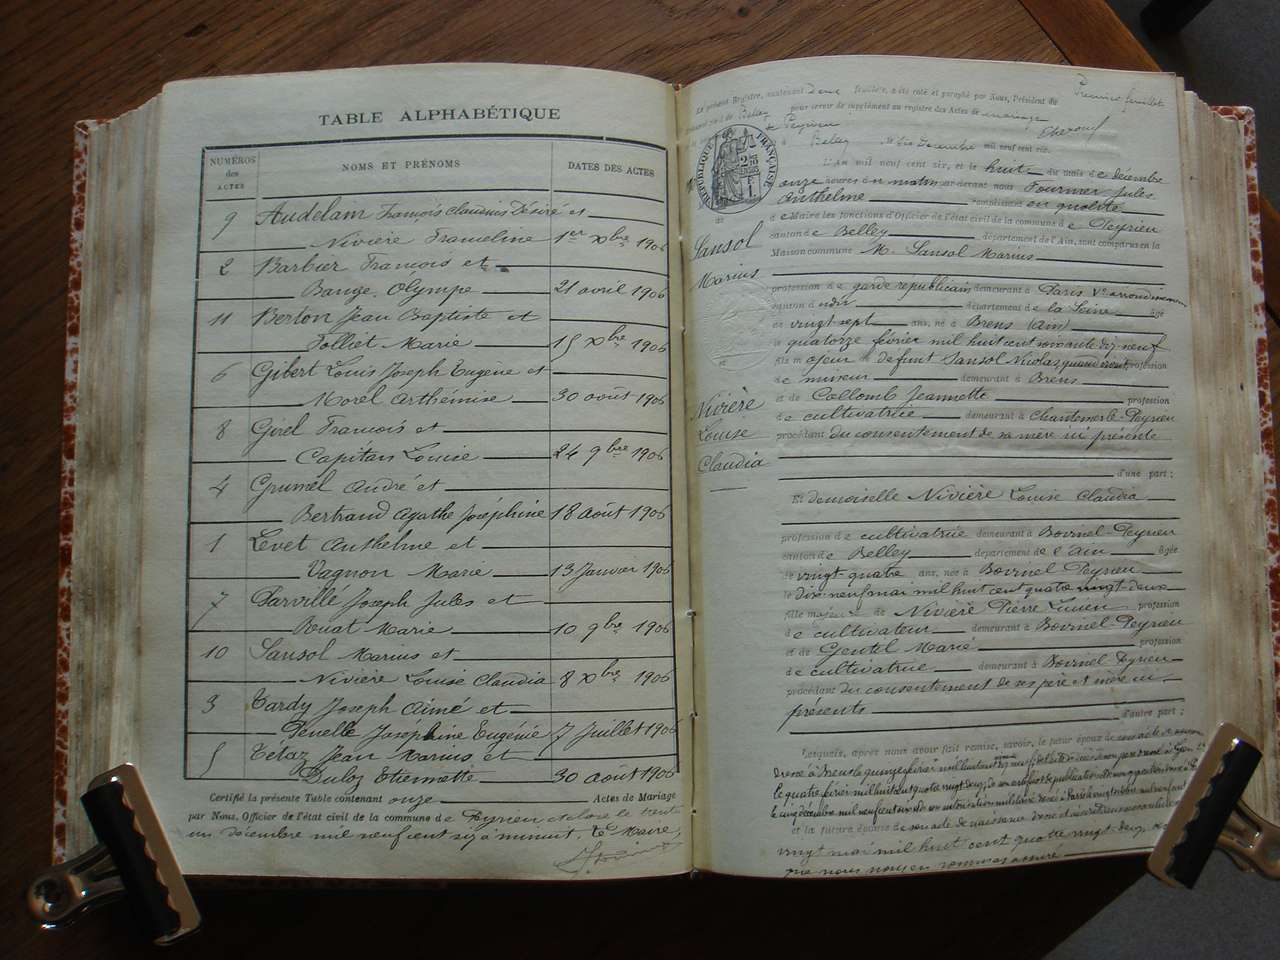 TABLE ALPHABÉTIQUE
NUMÉROS des ACTES
NOMS ET PRÉNOMS
DATES DES ACTES
9 Audelam François Claudius Désiré et
Nivière Franceline 1er Xbre 1906
2 Barbier François et
Bange Olympe 21 avril 1906
11 Berlon Jean Baptiste et
Jolliet Marie 15 Xbre 1906
6 Gibert Louis Joseph Eugène et
Morel Arthémise 30 août 1906
8 Girel François et
Capitan Louise 24 9bre 1906
4 Grumel André et
Bertrand Agathe Joséphine 18 août 1906
1 Levet Anthelme et
Vagnon Marie 13 Janvier 1906
7 Parville Joseph Jules et
Bouat Marie 10 9bre 1906
10 Sansol Marius et
Nivière Louise Claudia 8 Xbre 1906
3 Tardy Joseph Aimé et
Penelle Joséphine Eugénie 7 Juillet 1906
5 Tétaz Jean Marius et
Duloz Etiennette 30 août 1906
Certifié la présente Table contenant onze Actes de Mariage
par Nous, Officier de l'état civil de la commune de Peyrieu et close le trente
un décembre mil neuf cent six à minuit. Le Maire,
Premier feuillet
Le présent Registre, contenant deux feuillets, a été coté et paraphé par Nous, Président du
pour servir de supplément au registre des Actes de mariage
de Peyrieu
à Belley, le décembre mil neuf cent six.
RÉPUBLIQUE FRANÇAISE
L'An mil neuf cent six, et le huit du mois de décembre
onze heures du matin par-devant nous Fournier Jules
Anthelme remplissant en qualité
de Maire les fonctions d'Officier de l'état civil de la commune de Peyrieu
canton de Belley département de l'Ain, sont comparus en la
Maison commune M. Sansol Marius
Sansol
Marius
profession de garde républicain demeurant à Paris Ve arrondissement
canton dudit département de la Seine âgé
de vingt sept ans, né à Brens (Ain)
le quatorze février mil huit cent soixante dix neuf
fils majeur de défunt Sansol Nicolas, quand vivait, profession
de mineur demeurant à Brens
et de Collomb Jeannette profession
de cultivatrice demeurant à Chantemerle-Peyrieu
procédant du consentement de sa mère ici présente
d'une part ;
Nivière
Louise
Claudia
Et demoiselle Nivière Louise Claudia
profession de cultivatrice demeurant à Bovinel-Peyrieu
canton de Belley département de l'Ain âgée
de vingt quatre ans, née à Bovinel Peyrieu
le dix neuf mai mil huit cent quatre vingt-deux
fille majeure de Nivière Pierre Lucien profession
de cultivateur demeurant à Bovinel-Peyrieu
et de Gentil Marie profession
de cultivatrice demeurant à Bovinel Peyrieu
procédant du consentement de ses père et mère ici
présents
d'autre part ;
Lesquels, après nous avoir fait remise, savoir, le futur époux de son acte de naissance
et la future épouse de son acte de naissance
vingt mai mil huit cent quatre vingt deux,
que nous nous en sommes assuré